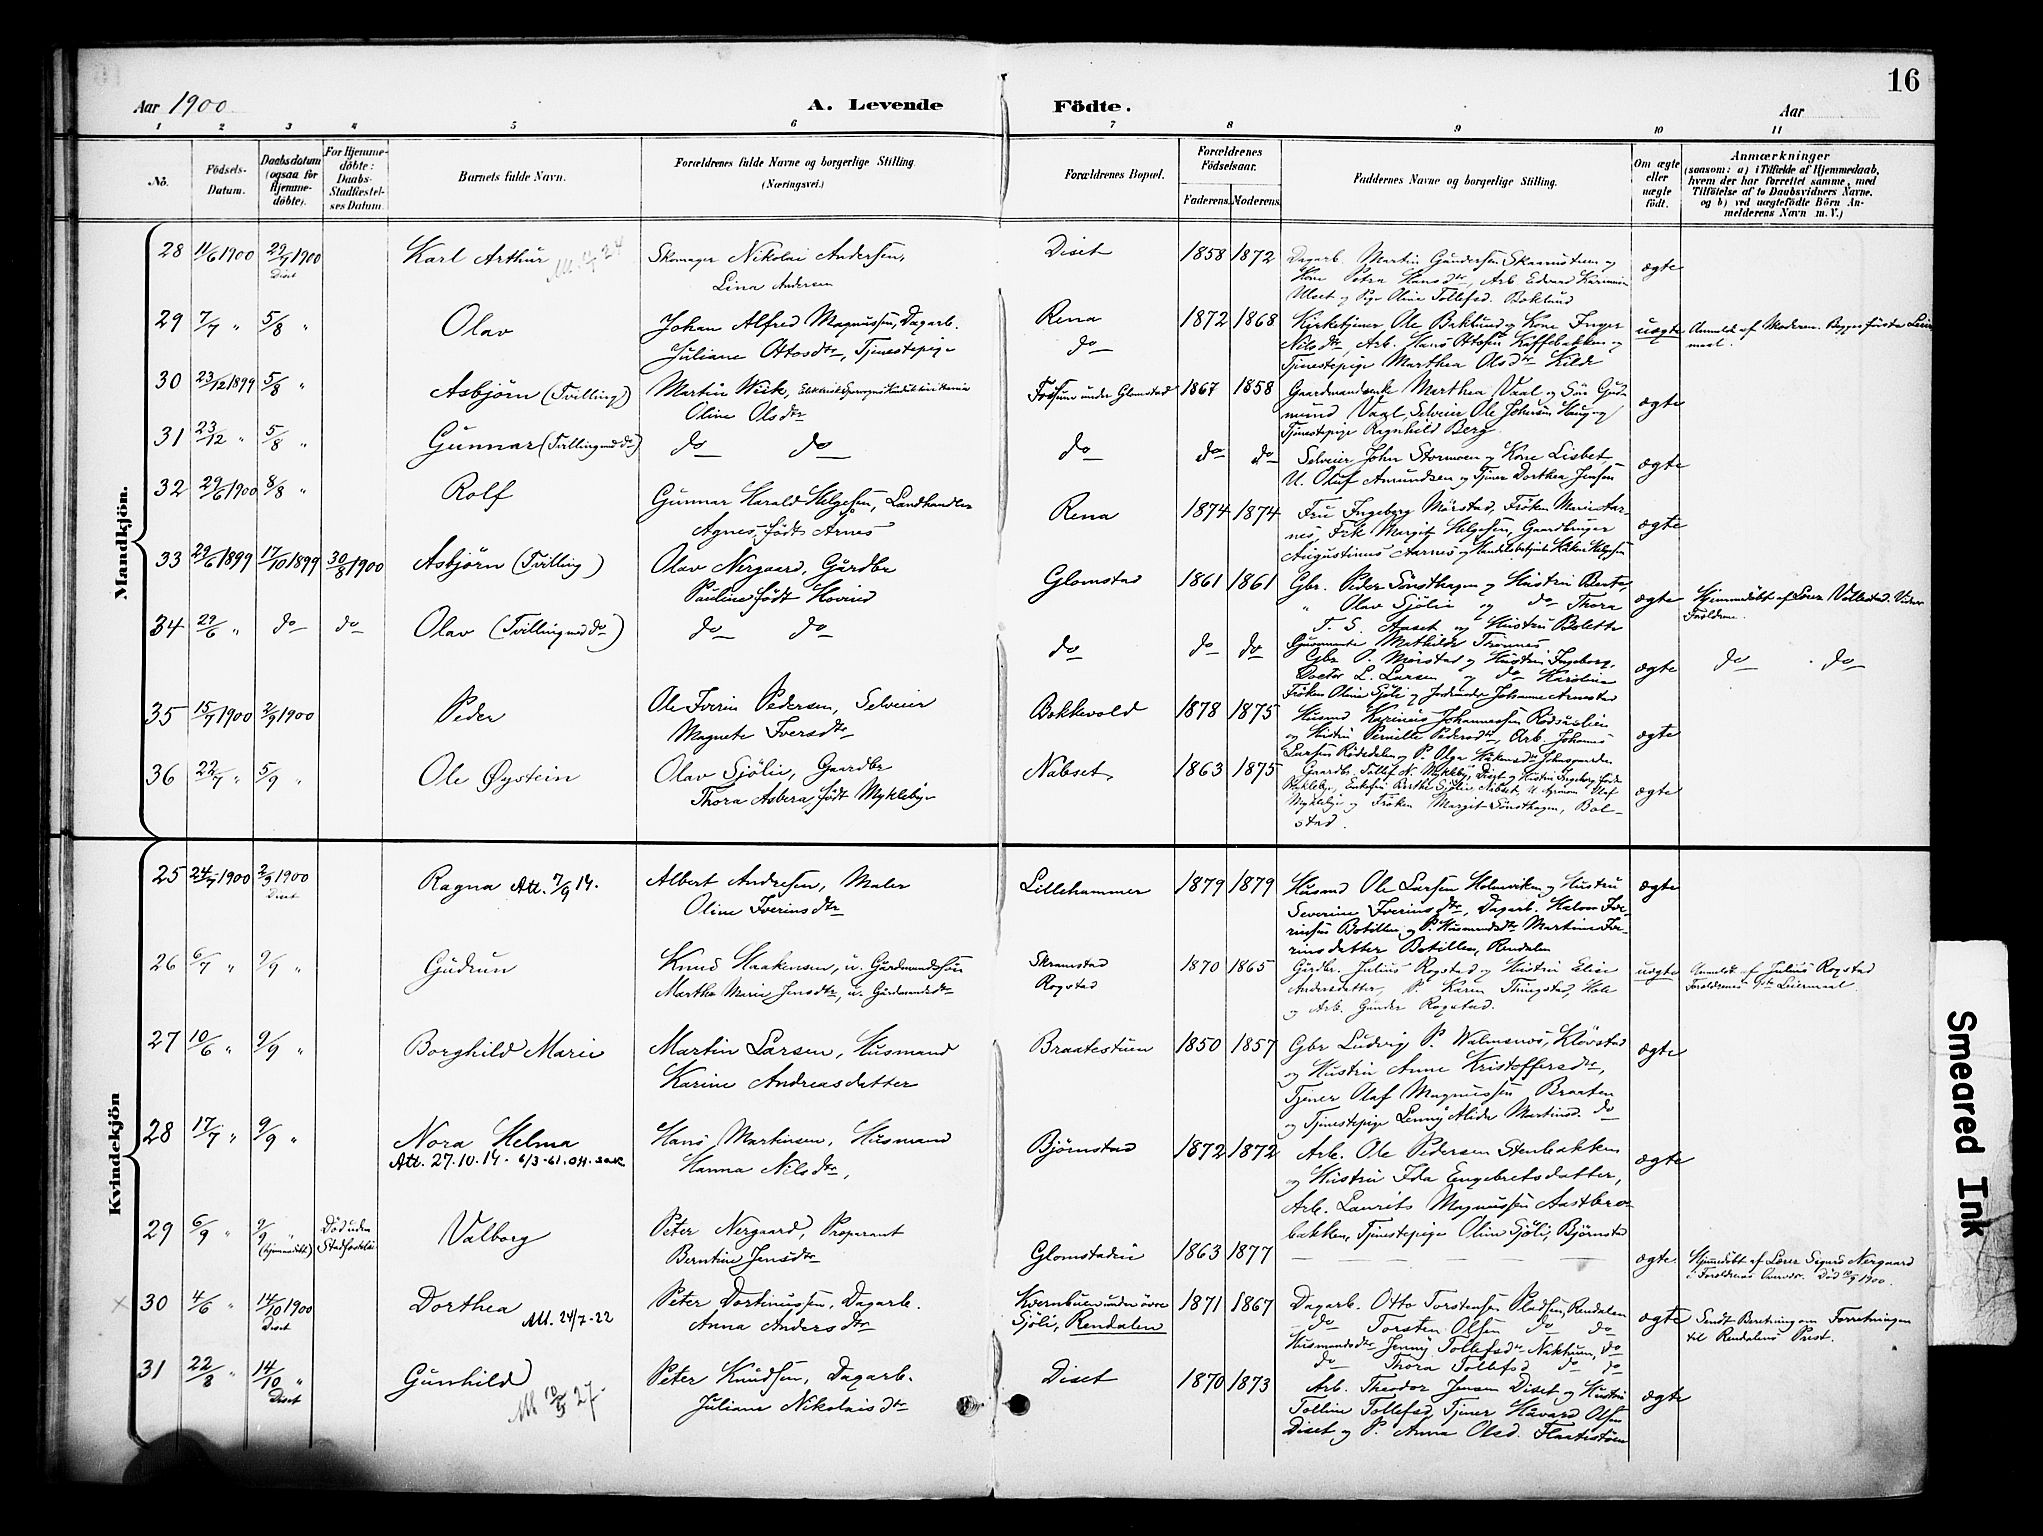 16
Aar 1900
A. Levende Födte.
Aar
1 2 3 4 5 6 7 8 9 10 11
No.
Födsels-Datum.
Daabsdatum (ogsaa for Hjemme-döbte).
For Hjemme-döbte: Daabs-Stadfæstel-ses Datum.
Barnets fulde Navn.
Forældrenes fulde Navne og borgerlige Stilling.
(Næringsvei.)
Forældrenes Bopæl.
Forældrenes Födselsaar.
Faderens. Moderens.
Faddernes Navne og borgerlige Stilling.
Om ægte eller uægte födt.
Anmærkninger
(saasom: a) i Tilfælde af Hjemmedaab,
hvem der har forrettet samme, med
Tilföielse af to Daabsvidners Navne,
og b) ved uægtefödte Börn An-
melderens Navn m. V.)
Mandkjön.
28 11/6 1900 29/7 1900 Diset Karl Arthur
Skomager Nikolai Andersen,
Lina Andersen
Diset 1858 1872
Dagarb. Martin Gundersen Skramstuen og
Kone Petra Hansdtr, Arb Edvard Karinusen
Ulset og Pige Oline Tollefsd. Boklund
ægte
29 7/7 " 5/8 " Olav
Johan Alfred Magnussen, Dagarb.
Juliane Ottosdtr, Tjenestepige
Rena do 1872 1868
Kirketjener Ole Baklund og Kone Inger
Nilsdtr, Arb. Hans Ottosen Koffebakken og
Tjenestepige Marthea Olsdtr Kilde
uægte Anmeldt af Moderen. Begges förste Leier-
maal.
30 23/12 1899 5/8 " Asbjörn (Tvilling)
Martin Wiik,
Oline Olsdtr
Fossum under Glomstad 1867 1858
Gaardmandsenke Marthea Vaal og Sön Gud-
mund Vaal, Selveier Ole Johnsen Haug og
Tjenestepige Ragnhild Berg.
ægte
31 23/12 " 5/8 " Gunnar (Tvilling med do)
do do
do do do
Selveier John Stormoen og Kone Lisbet
U. Oluf Amundsen og Tjener Dorthea Jensen
ægte
32 29/6 1900 8/8 " Rolf
Gunnar Harald Helgesen, Landhandler
Agnes, födt Arnes
Rena 1874 1874
Fru Ingeborg Mörstad, Fröken Marie Aar-
nes, Frk Margit Helgesen, Gaardbruger
Augustinus Aarnes og Handelsbetjent Håkon Helgesen
ægte
33 29/6 1899 17/10 1899 30/8 1900 Asbjörn (Tvilling)
Olav Nergaard, Gårdbr
Pauline födt Hovind
Glomstad 1861 1861
Gbr. Peder Sönsthagen og Hustru Berte,
" Olav Sjölie og do Thora
T. S. Aaset og Hustru Bolette
ægte Hjemmedöbt af Lærer Vollestad. Vidner
Forældrene.
34 29/6 " do do Olav (Tvilling med do)
do do
do do do
Guvernante Mathilde Trönnes
Gbr O. Mörstad og Hustru Ingeborg,
Doctor L. Larsen og do Karoline
Fröken Oline Sjöli og Jordmoder Johanne Arnestad
ægte do do
35 15/7 1900 2/9 1900 Peder
Ole Iverin Pedersen, Selveier
Magnete Iversdtr
Bokkevold 1878 1875
Husmd Karinus Johannessen Rödsåslien
og Hustru Pernille Pedersdtr, Arb. Johannes
Larsen Rödsdalen og P. Olga Håkensdtr
ægte
36 22/7 " 5/9 " Ole Øystein
Olav Sjölie, Gaardbr
Thora Asbera födt Mykleby
Nabset 1863 1875
Gaardbr. Tollef N. Mykleby, Diset og Hustru Ingeborg födt
Mykleby, Enkefru Berthe Sjölie, Nabset, U. Olaf
Mykleby og Fröken Margit Sönsthagen, Bol-
stad.
ægte
Kvindekjön
25 24/7 1900 2/9 1900 Diset Ragna Att. 7/9 14.
Albert Andresen, Maler
Oline Iverinsdtr
Lillehammer 1879 1879
Husmd Ole Larsen Holmviken og Hustru
Severine Iverinsdtr, Dagarb. Halvor Ive-
rinsen Botillen og P. Husmandsdtr Martine Ive-
rinsdatter Botillen, Rendalen
ægte
26 6/7 " 9/9 " Gudrun
Knud Haakensen, u. Gårdmandssön
Marthe Marie Jensdtr, u. Gårdmandsdtr
Skramstad
Rogstad
1870 1865
Gårdbr. Julius Rogstad og Hustru Elise
Andersdatter, P. Karen Thingstad, Hole
og Arb. Gunder Rogstad.
uægte Anmeldt af Julius Rogstad
Forældrenes 1ste Leiermaal.
27 10/6 " 9/9 " Borghild Marie
Martin Larsen, Husmand
Karine Andreasdatter
Braatestuen 1850 1857
Gbr Ludvig P. Walmsnes, Klövstad
og Hustru Anne Kristoffersdtr,
Tjener Olaf Magnussen Braaten
og Tjenestepige Lenny Alida Martinsd. do
ægte
28 17/7 " 9/9 " Nora Helma
Att. 27.10.14. 6/3-61.
Hans Martinsen, Husmand
Hanna Nilsdtr,
Bjørnstad 1872 1872
Arb. Ole Pedersen Stenbakken
og Hustru Ida Engebretsdatter,
Arb. Laurits Magnussen Aastbro-
bakken, Tjenestepige Oline Sjöli, Bjørnstad
ægte
29 6/9 " 9/9 " (hjemmedöbt) Död uden Stadfæstelse Valborg
Peter Nergaard, Proprietær
Berntine Jensdtr
Glomstadeie 1863 1877
ægte. Hjemmedöbt af Lærer Sigurd Nergaard
i Forældrenes Overvær. Död 10/9 1900.
30 4/6 " 14/10 1900 Diset Dorthea Att. 24/7-22
Peter Dortinussen, Dagarb.
Anna Andersdtr
Kvernbuen under övre
Sjöli, Rendalen
1871 1867
Dagarb. Otto Torstensen Pladsen, Rendalen
do Torsten Olsen do do
Husmandsdtr Jenny Tollefsdtr Nektum, do
do Thora Tollefsd do do
ægte Sendt Beretning om Forretningen
til Rendalens Præst.
31 22/8 " 14/10 " Diset Gunhild Att 10/5 27-
Peter Knudsen, Dagarb.
Juliane Nikolaisdtr
Diset 1870 1873
Arb. Theodor Jensen Diset og Hustru
Tolline Tollefsd, Tjener Håvard Olsen
Diset og P. Anna Olsd. Flaatestöen
ægte
Smeared Ink